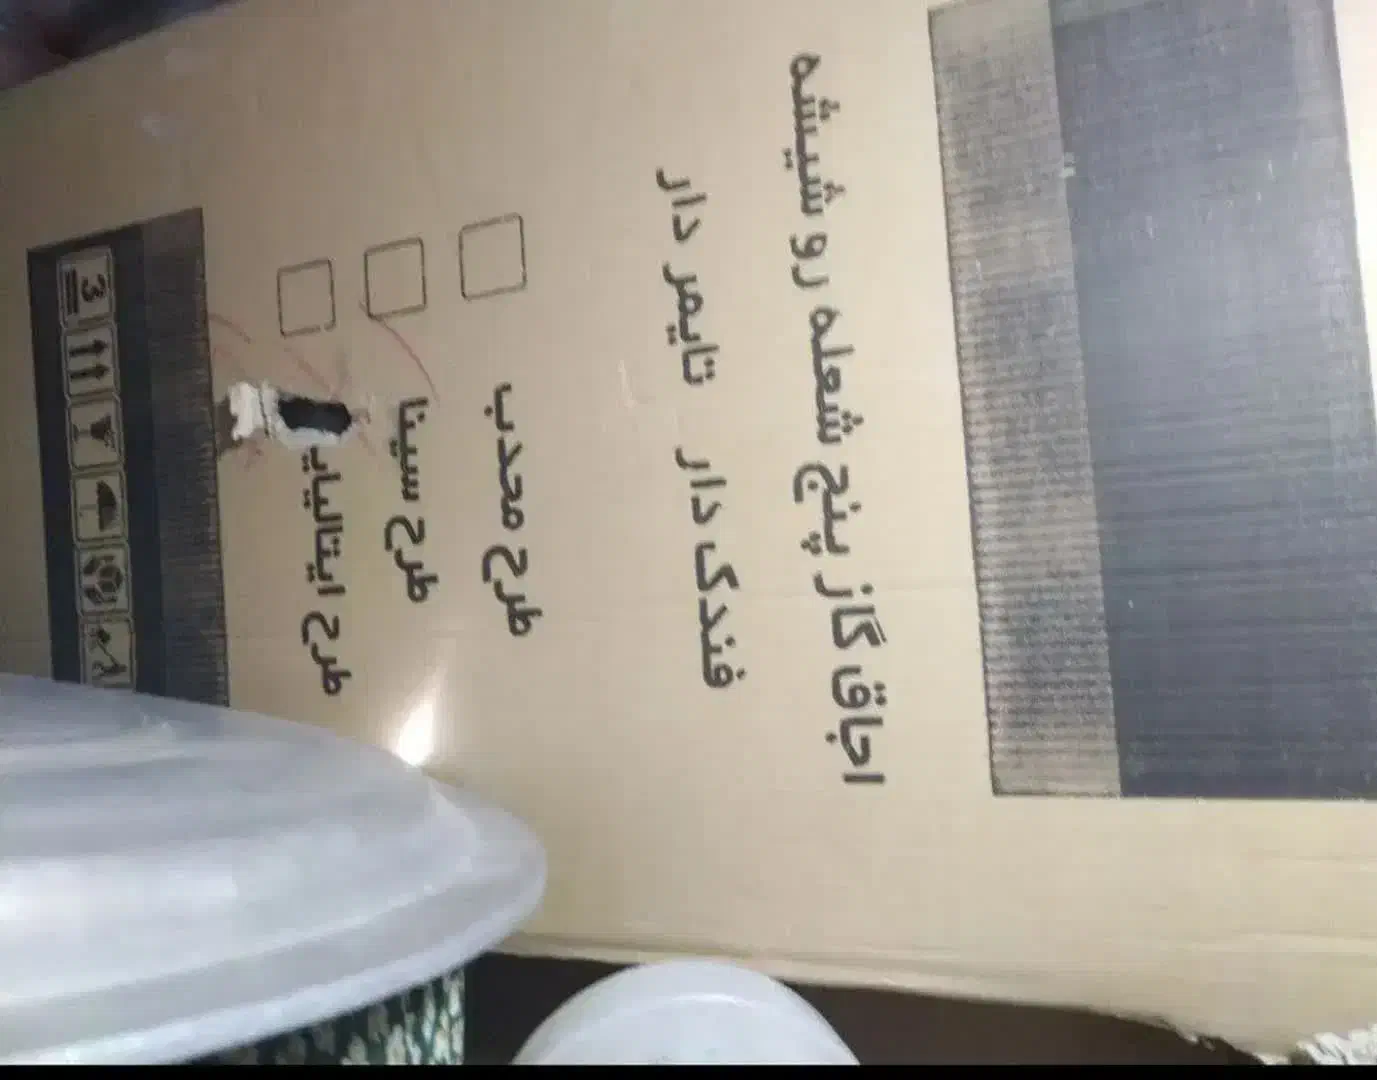 اجاق گاز پنج شعله رو شیشه
فندک دار تایمر دار
طرح محدب
طرح سینا
طرح ایتالیایی
3